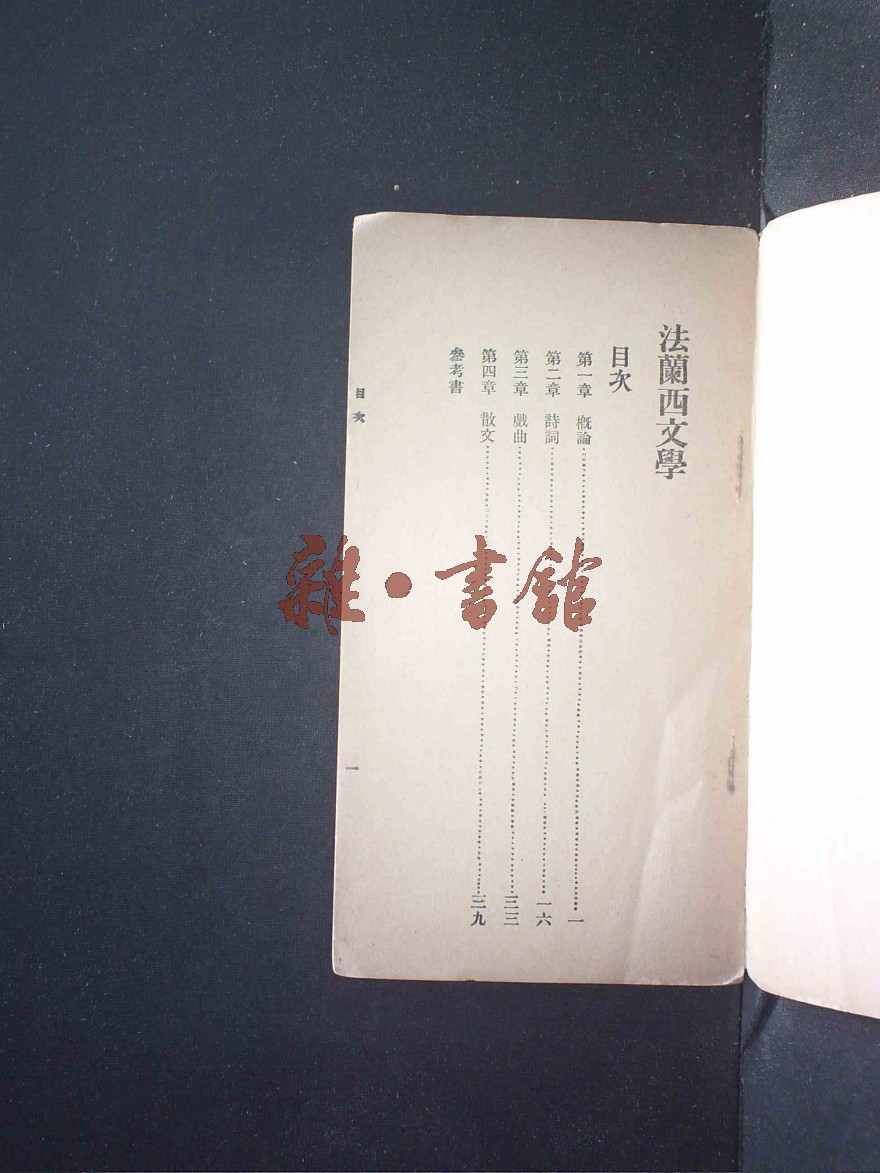 法蘭西文學
目次
第一章 概論……一
第二章 詩詞……一六
第三章 戲曲……三三
第四章 散文……三九
參考書
目次
一
雜·書館